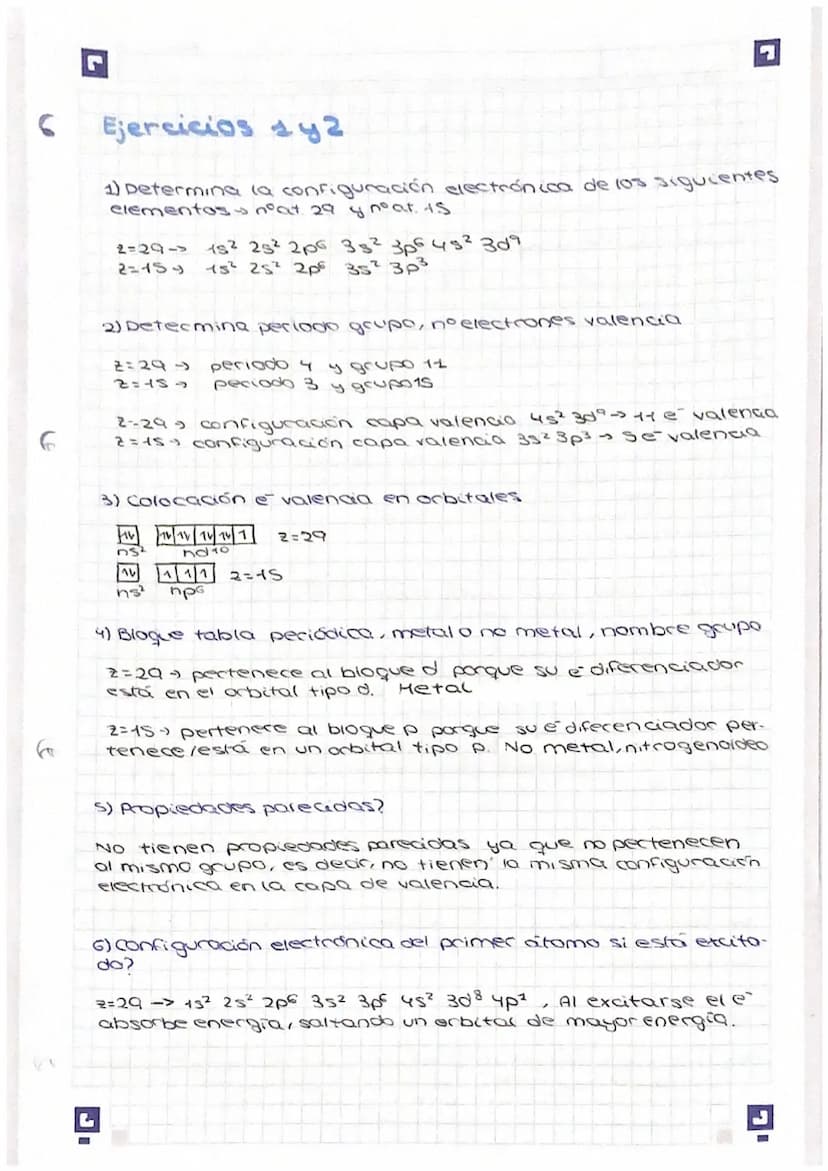 Ejercicios 1 y 2
1) Determina la configuración electrónica de los siguientes
elementos → nºat. 29 y nºat. 15
z=29 → 1s² 2s² 2p⁶ 3s² 3p⁶ 4s² 3d⁹
z=15 → 1s² 2s² 2p⁶ 3s² 3p³
2) Determina periodo grupo, nº electrones valencia
z=29 → periodo 4 y grupo 11
z=15 → periodo 3 y grupo 15
z=29 → configuración capa valencia 4s² 3d⁹ → 11 e⁻ valencia
z=15 → configuración capa valencia 3s² 3p³ → 5 e⁻ valencia
3) Colocación e⁻ valencia en orbitales
↑↓ ↑↓ ↑↓ ↑↓ ↑↓ ↑ z=29
ns² nd¹⁰
↑↓ ↑ ↑ ↑ z=15
ns² np⁶
4) Bloque tabla periódica, metal o no metal, nombre grupo
z=29 → pertenece al bloque d porque su e⁻ diferenciador
está en el orbital tipo d. Metal
z=15 → pertenece al bloque p porque su e⁻ diferenciador per-
tenece/está en un orbital tipo p. No metal, nitrogenoideo
5) Propiedades parecidas?
No tienen propiedades parecidas ya que no pertenecen
al mismo grupo, es decir, no tienen la misma configuración
electrónica en la capa de valencia.
6) Configuración electrónica del primer átomo si está excita-
do?
z=29 → 1s² 2s² 2p⁶ 3s² 3p⁶ 4s² 3d⁸ 4p¹, Al excitarse el e⁻
absorbe energía, saltando un orbital de mayor energía.